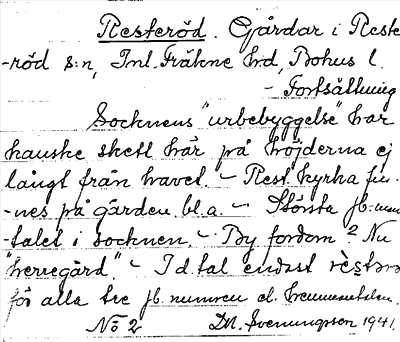 Resteröd. Gårdar i Reste
-röd s:n, Inl. Fräkne hd, Bohus l.
- Fortsättning
Socknens "urbebyggelse" har
kanske skett här på höjderna ej
långt från havet. - Rest. kyrka fin-
-nes på gården bl.a. - Största jb:num
-talet i socknen. - By fordom? Nu
"herregård". - I d. tal endast rèstərə
för alla tre jb. numren el. hemmantalen.
No 2 DM. Svenungsson 1941.